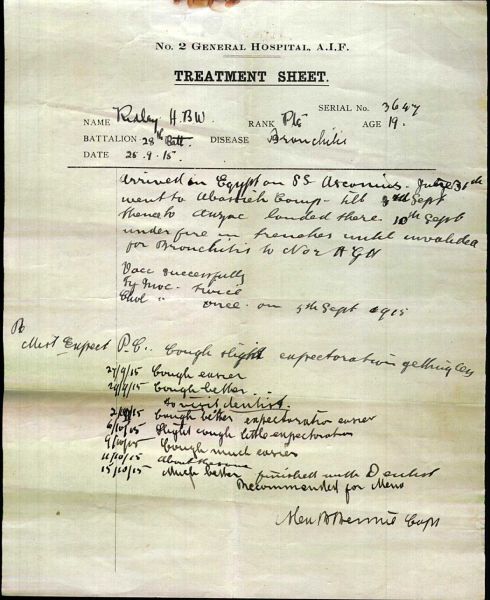 No. 2 GENERAL HOSPITAL, A.I.F.
TREATMENT SHEET.
SERIAL No. 3647
NAME Ridley H.B.W. RANK Pte AGE 19.
BATTALION 28th Batt. DISEASE Bronchitis
DATE 25.9.15.
Arrived in Egypt on SS Ascanius. June 30th
went to Abassieh Camp till 3rd Sept
thence to Anzac landed there 10th Sept
under fire in trenches until invalided
for Bronchitis to No 2 AGH
Vacc successfully
Ty Inoc. twice
Chol " once on 5th Sept 1915
Rx
Mist Expect P.C. Cough slight expectoration getting less
27/9/15 Cough easier
29/9/15 Cough better
To visit dentist
Cough better expectoration easier
6/10/15 Slight cough little expectoration
9/10/15 Cough much easier
11/10/15 About the same
15/10/15 Much better finished with Dentist
Recommended for Mena
Capt